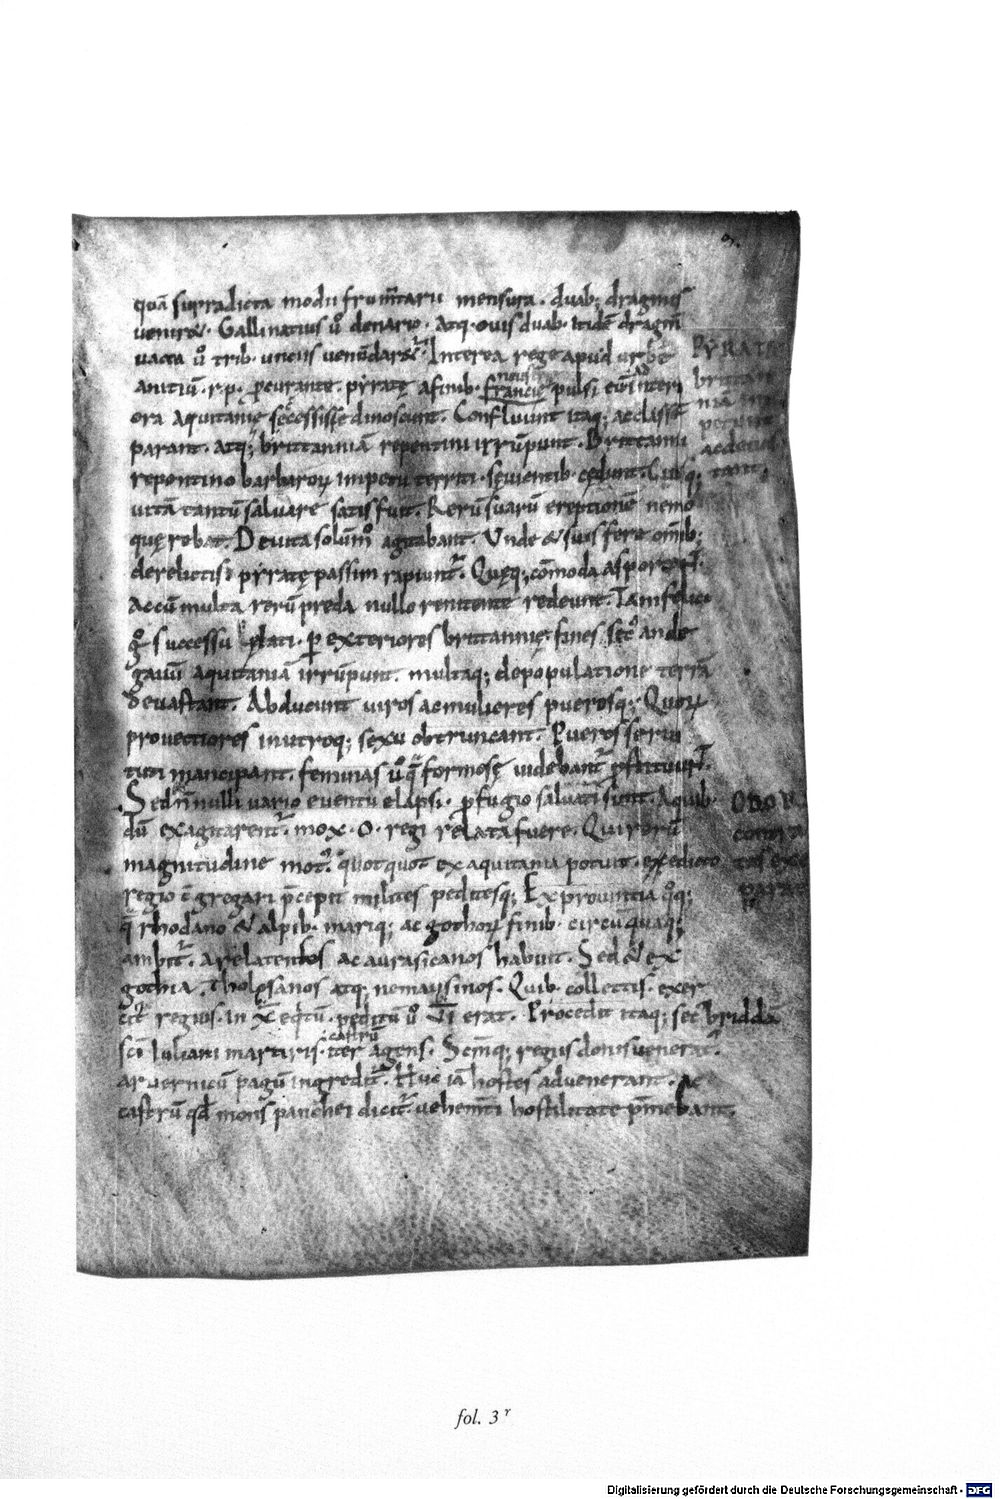 quā supradicta modii frum̅tarii mensura · duab; dragmis
veniret · Gallinatius u̅o denario · Atq · ovis duab · itide̅ dragm̅
vacca u̅o trib · unciis venu̅daret̅ · Interea rege apud urbe̅
anitiu̅ · r · p · p̲curante · pyratę a finib · francię pulsi
ora aquitanię secessisse dinoscunt · Confluunt itaq; ac classe̅
parant · atq; brittanniā repentini irru̅punt · Brittanni
repentino barbaroꝝ impetu territi · sęvientib · cędunt ·
vitā tantu̅ salvare satis fuit · Reru̅ suaru̅ ereptione̅ nemo
quęrebat · De vita solum̅o agitabant · Unde & suis fere om̅ib;
derelictis · pyratę passim rapiunt̅ · Quęq; co̅moda asportant̅ ·
Ac cu̅ multa reru̅ preda nullo renitente redeunt · Tam felici
g̊ successu elati · p̲ exteriores brittannię fines · sec̅ ande
gavu̅ aquitaniā irru̅punt · multaq; depopulatione terrā
devastant · Abducunt viros ac mulieres puerosq; · Quoꝝ
provectiores in utroq; sexu obtruncant · Pueros servi
tuti mancipant · feminas u̅o q̅ formosę videbant̅ p̲stituunt̅ ·
Sed n̅nulli vario eventu elapsi · p̲fugio salvati sunt · A quib ·
du̅ exagitarent̅ · mox · O · regi relata fuere · Qui reru̅
magnitudine mot̅ · quotquot ex aquitania potuit · ex edicto
regio & gregarios p̅cepit milites peditesq; Ex provintia q̊q;
q̅ rhodano & alpib · mariq; ac gothoꝝ finib · circu̅quaq;
ambit̅ · arelatenses ac aurasicanos habuit · Sed & ex
gothia · tholosanos atq; nemausinos · Quib · collectis · exer
cit̅ regius · in x̅ eq̅tu̅ · peditu̅ u̅o vi̅ erat · Procedit itaq; sec̅ briddā
castru̅
sc̅i Iuliani martiris · iter agens · Sc̅mq; regiis donis venerat̅ ·
arvernicu̅ pagu̅ ingredit̅ · Huc iā hostes advenerant · Ac
castru̅ qd̅ mons panchei dicit̅ · vehem̅ti hostilitate p̅mebant ·
fol. 3ʳ
Digitalisierung gefördert durch die Deutsche Forschungsgemeinschaft - DFG